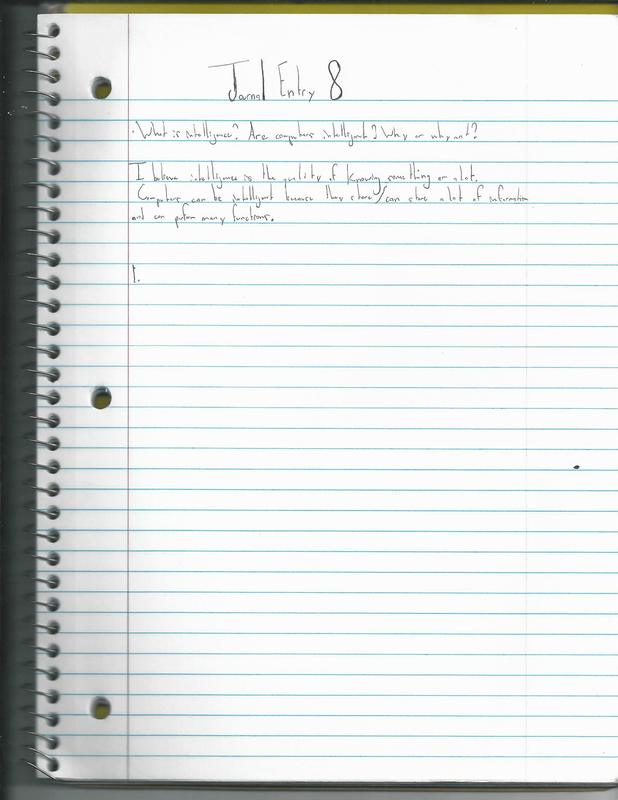 Journal Entry 8
· What is intelligence? Are computers intelligent? Why or why not?
I believe intelligence is the quality of knowing something or a lot.
Computers can be intelligent because they store/can store a lot of information
and can perform many functions.
1.